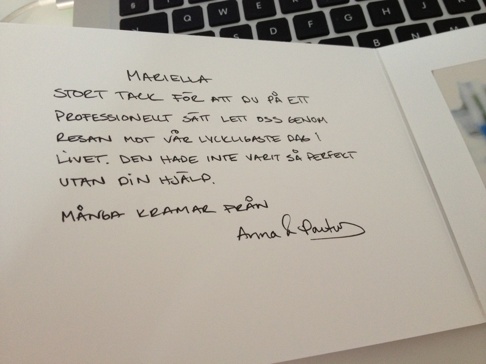 MARIELLA
STORT TACK FÖR ATT DU PÅ ETT
PROFESSIONELLT SÄTT LETT OSS GENOM
RESAN MOT VÅR LYCKLIGASTE DAG I
LIVET. DEN HADE INTE VARIT SÅ PERFEKT
UTAN DIN HJÄLP.
MÅNGA KRAMAR FRÅN
Anna &